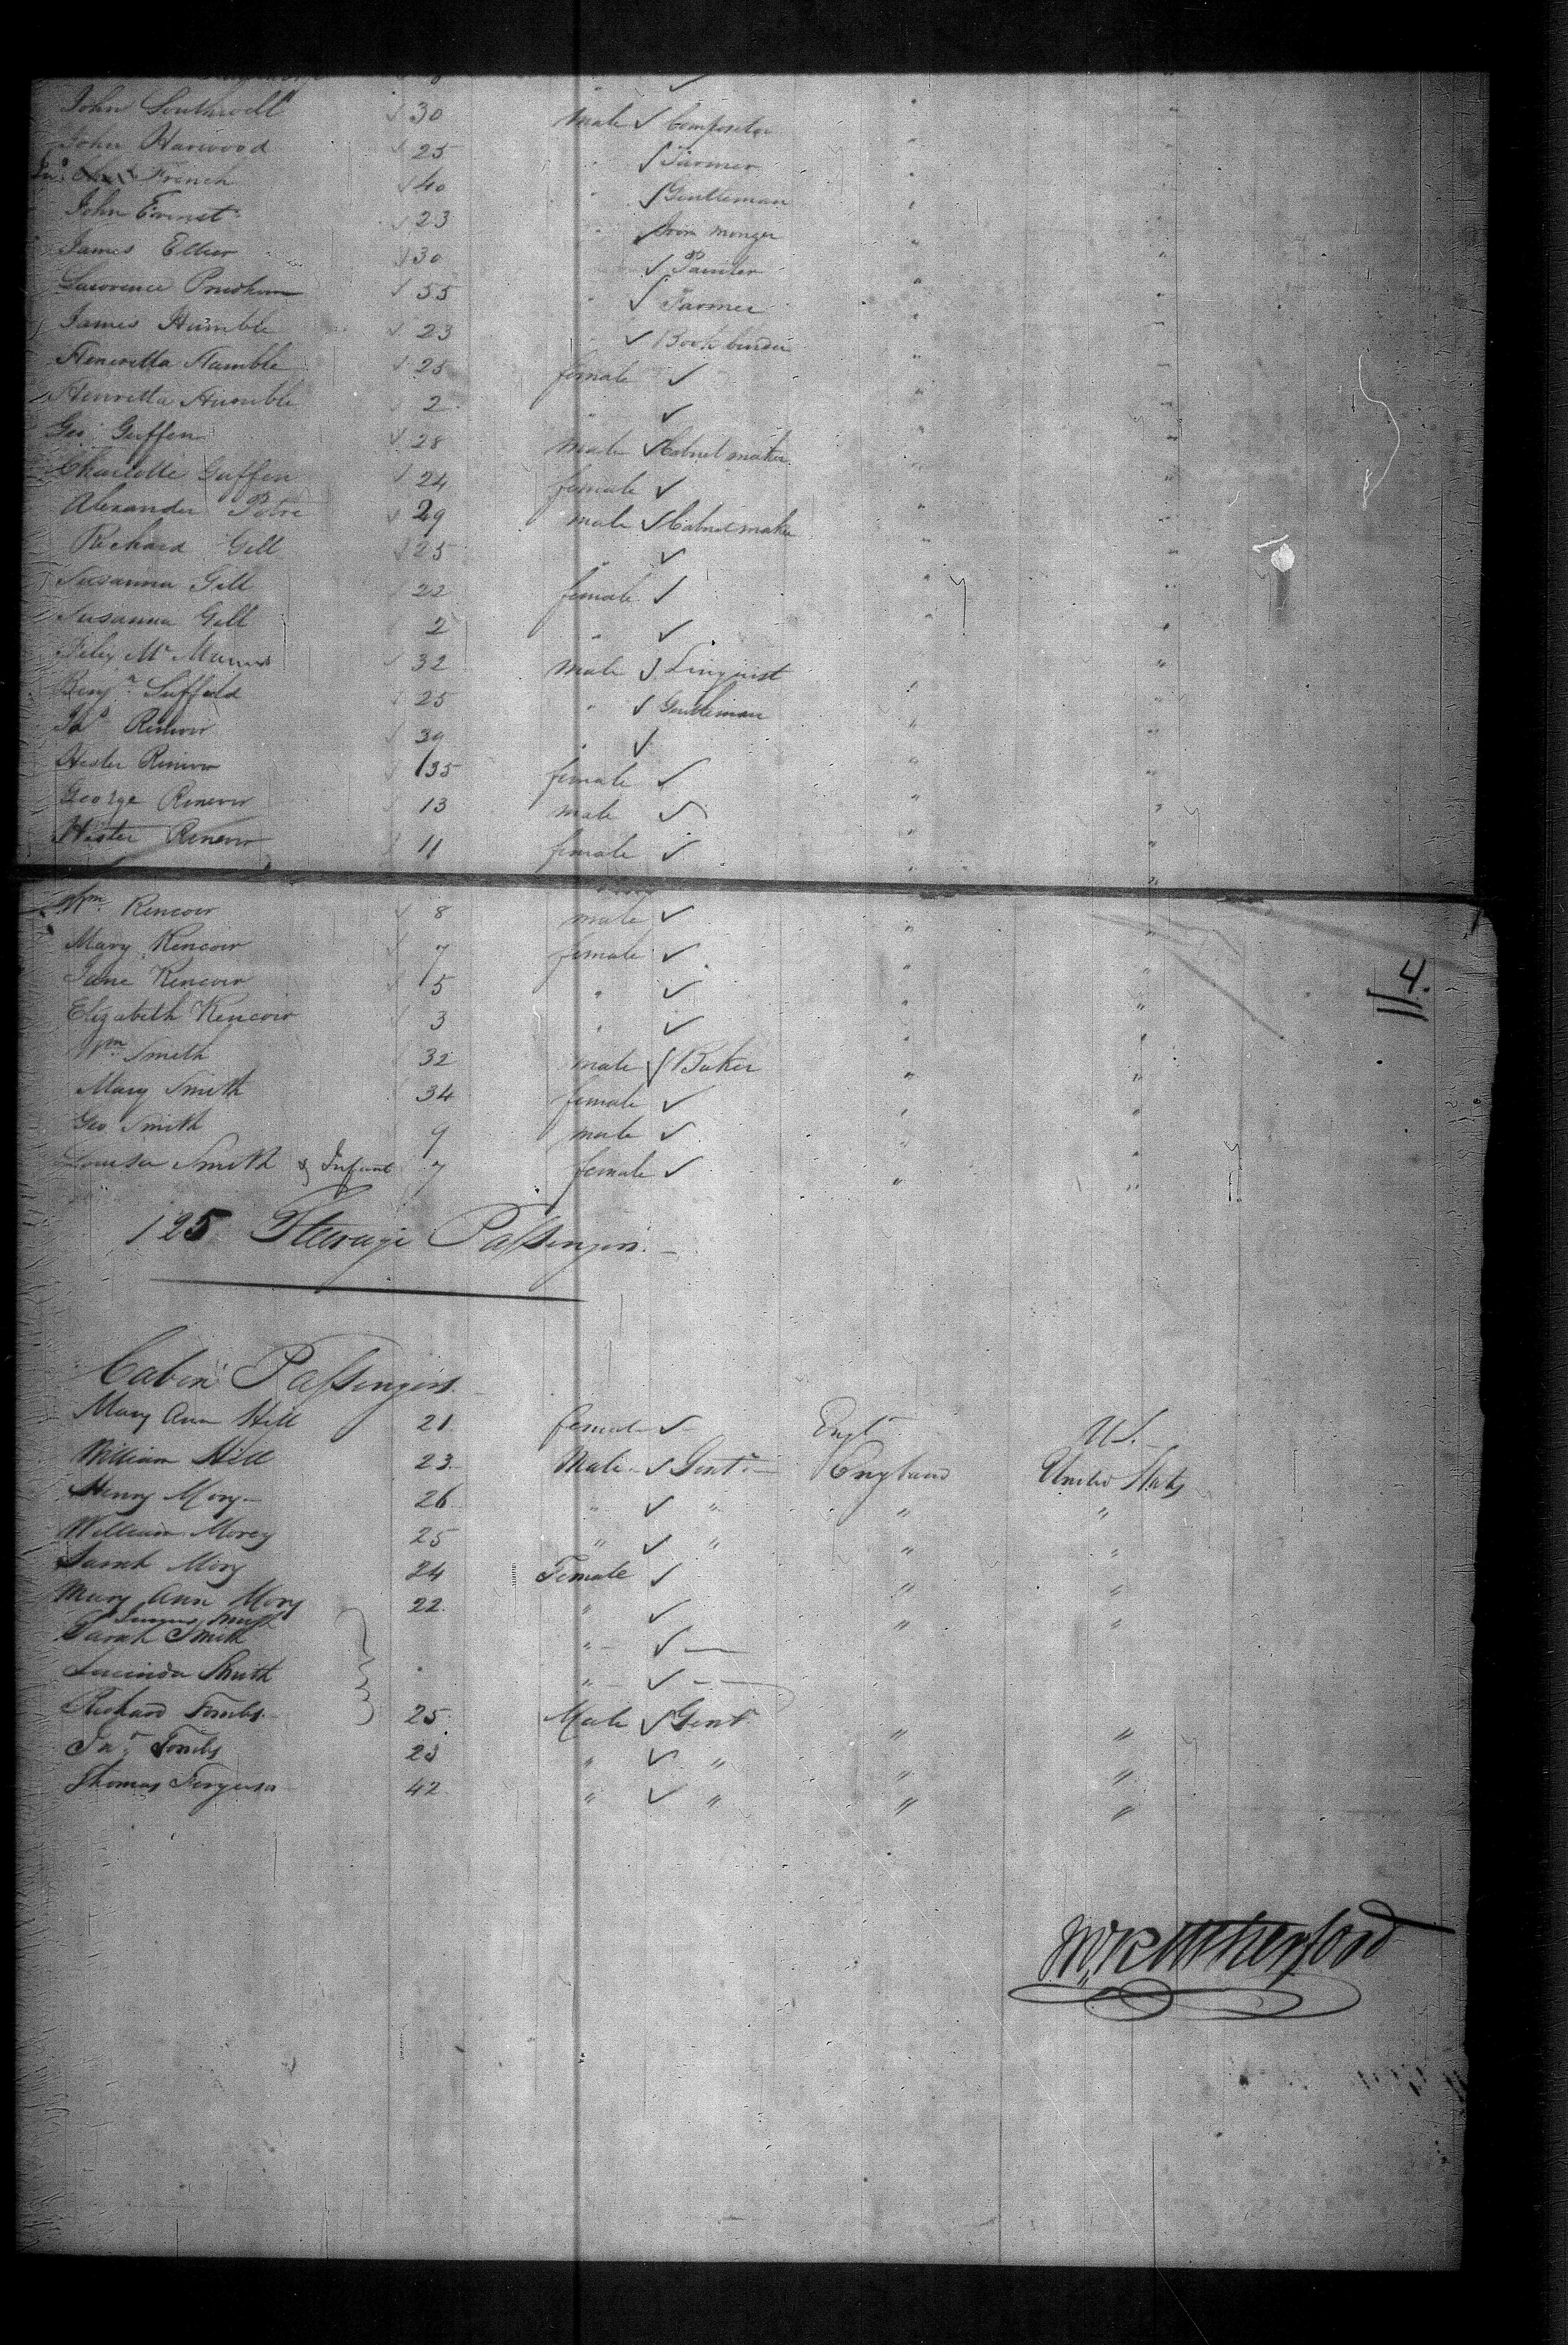 John Southwell 30 male Compositor " "
John Harwood 25 " Farmer " "
French 40 " Gentleman " "
John Ernst 23 " Iron monger " "
James 30 " Painter " "
Lawrence 55 " Farmer " "
James Humble 23 " Book binder " "
Heneretta Humble 25 female " "
Henretta Humble 2 " " "
Geo Guffen 28 male Cabnet maker " "
Charlotte Guffen 24 female " "
Alexander Petre 29 male Cabnet maker " "
Richard Gell 25 " " "
Susanna Gell 22 female " "
Susanna Gell 2 " " "
Felix Mc Manus 32 male Linquist " "
Benjn. 25 " Gentleman " "
39 " " "
Hester 35 female " "
George 13 male " "
Hester 11 female " "
Wm. Rencoir 8 male " "
Mary Rencoir 7 female " "
Jane Rencoir 5 " " "
114.
Elizabeth Rencoir 3 " " "
Wm Smith 32 male Baker " "
Mary Smith 34 female " "
Geo Smith 9 male " "
Louisa Smith & Infant 7 female " "
125 Steerage Passengers.
Cabin Passengers
Mary Ann Hill 21 female Engd US.
William Hill 23 Male Gent. England United States
Henry Mory 26 " " " "
William Morey 25 " " " "
Sarah Mory 24 Female " "
Mary Ann Mory 22 " " "
Smith
Sarah Smith "
Lucinda Smith "
Richard Tombs 25 Male Gent " "
Jno. Tombs 23 " " " "
Thomas Ferguson 42 " " " "
Wm Rutherford